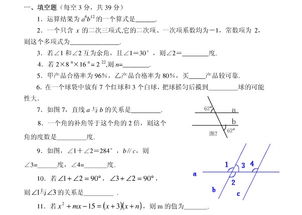 一、填空题(每空 3 分，共 39 分)
1．运算结果为 a⁶b¹² 的一个算式是______.
2．一个只含 x 的二次三项式,它的二次项、一次项系数均为－1，常数项为 2，
则这个多项式为______.
3．若∠1 和∠2 互为余角，且∠1＝30°，则∠2＝______度.
4．若 2×8ⁿ×16ⁿ=2²²,则 n=______.
5．甲产品合格率为 96%，乙产品合格率为 80%，买______产品较可靠.
6．在一个球袋中放有 7 个红球和 3 个白球，把球摇匀后摸到______球的可能
性大.
7．如图 7，直线 a 与 b 的关系是______.
8．一个角的补角等于这个角的 2 倍，则这个
角的度数是______度.
62°
a
62°
b
图2
9．如图，∠1＋∠2＝284°，b//c，则
∠3=______度，∠4=______度.
10．若 ∠1＋∠2＝90°，∠3＋∠2＝90°，
则∠1与∠3 的关系是______．
1
3
4
2
a
b
c
11．若 x²＋mx－15＝(x＋3)(x＋n)，则 m 的值为______.